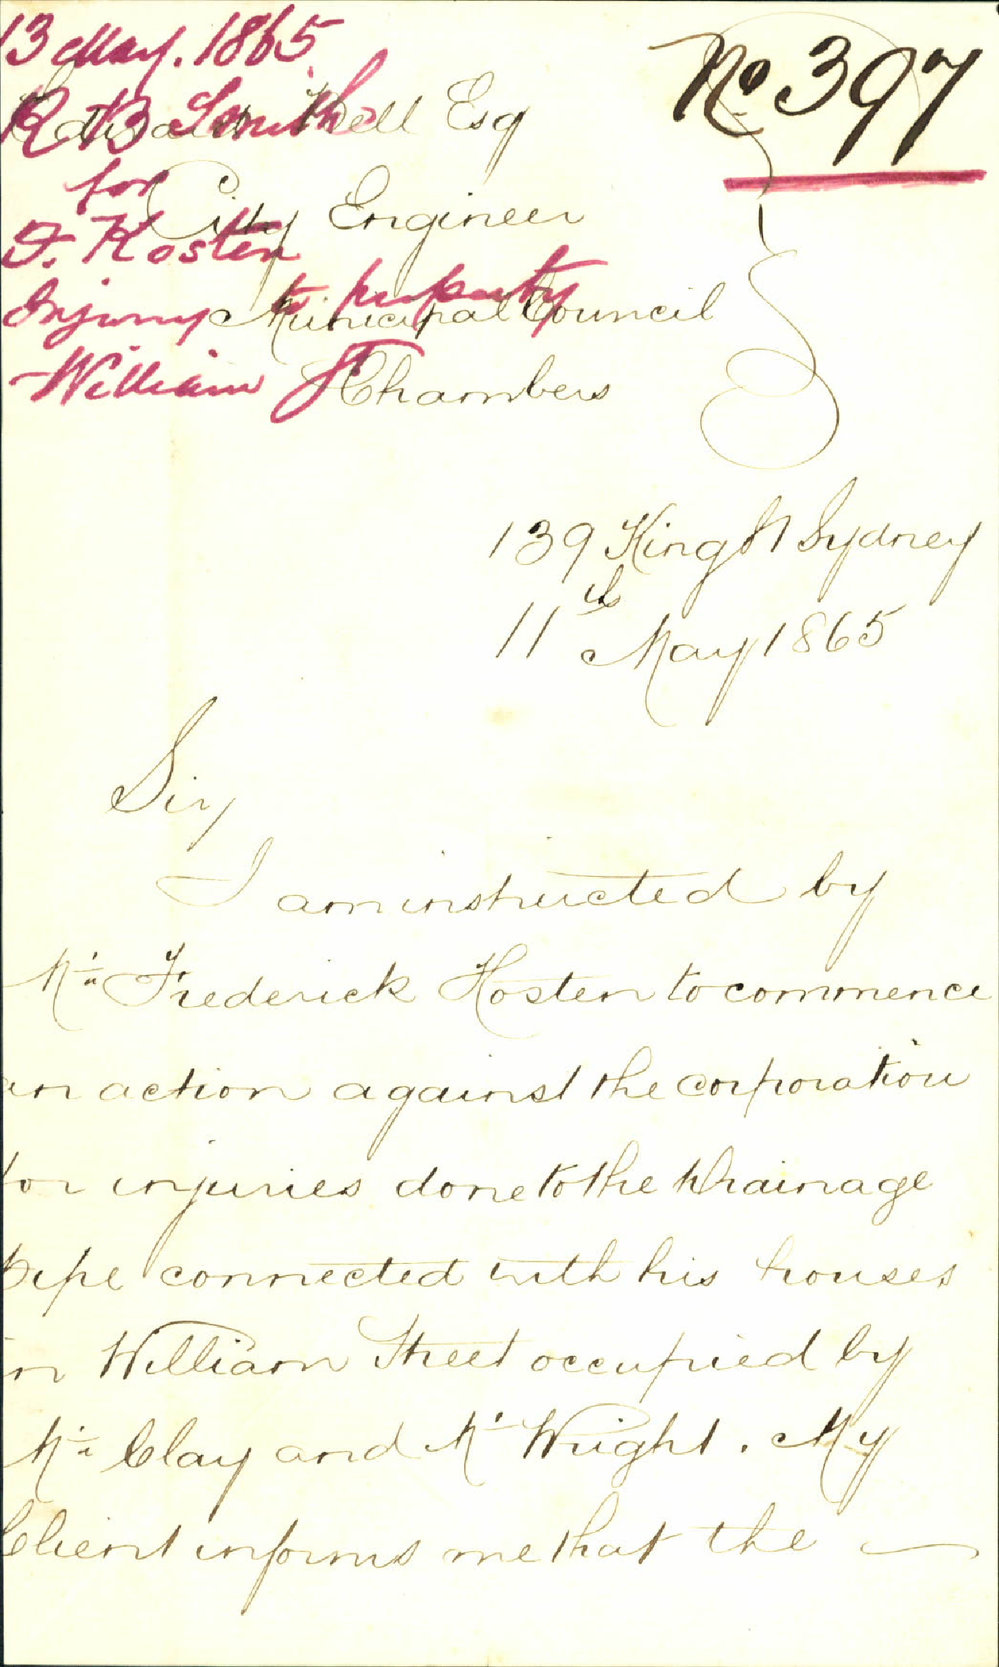 13 May. 1865
No 397
R B Smith
for
F. Hosten
Injury to property
-William St
Bell Esq
City Engineer
Municipal Council
Chambers
139 King St Sydney
11th May 1865
Sir
I am instructed by
Mr Frederick Hosten to commence
an action against the corporation
for injuries done to the Drainage
pipe connected with his houses
in William Street occupied by
Mr Clay and Mr Wright. My
Client informs me that the